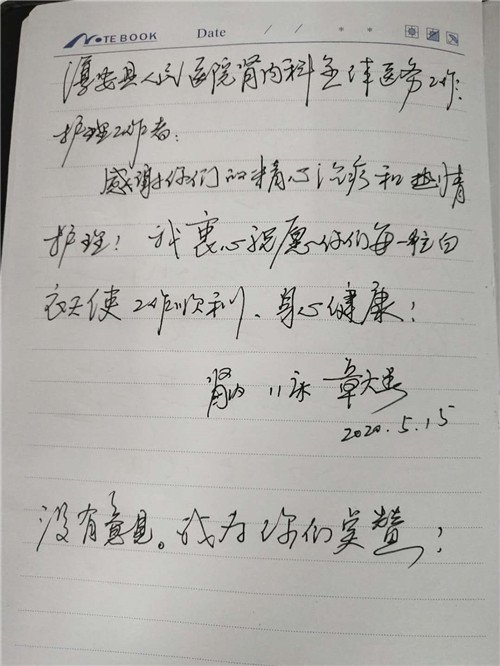 NOTEBOOK Date / / * *
淳安县人民医院肾内科全体医务工作、
护理工作者:
感谢你们的精心治疗和热情
护理!我衷心祝愿你们每一位白
衣天使工作顺利、身心健康!
肾内 11床 章
2020.5.15
没有意见。我为你们点赞!